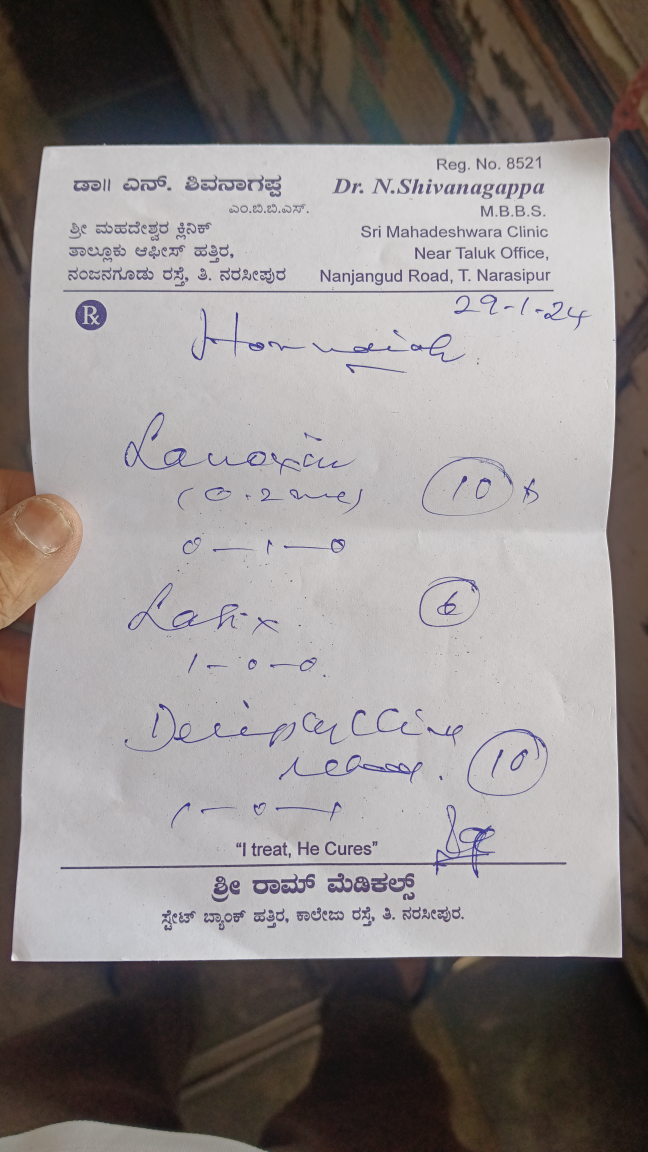 Reg. No. 8521
ಡಾ|| ಎನ್. ಶಿವನಾಗಪ್ಪ
Dr. N.Shivanagappa
ಎಂ.ಬಿ.ಬಿ.ಎಸ್.
M.B.B.S.
ಶ್ರೀ ಮಹದೇಶ್ವರ ಕ್ಲಿನಿಕ್
Sri Mahadeshwara Clinic
ತಾಲ್ಲೂಕು ಆಫೀಸ್ ಹತ್ತಿರ,
Near Taluk Office,
ನಂಜನಗೂಡು ರಸ್ತೆ, ತಿ. ನರಸೀಪುರ
Nanjangud Road, T. Narasipur
Rx
29-1-24
Lanoxin
10
0 - 1 - 0
Lasix
6
1 - 0 - 0
Deriphylline
10
1 - 0 - 1
"I treat, He Cures"
ಶ್ರೀ ರಾಮ್ ಮೆಡಿಕಲ್ಸ್
ಸ್ಟೇಟ್ ಬ್ಯಾಂಕ್ ಹತ್ತಿರ, ಕಾಲೇಜು ರಸ್ತೆ, ತಿ. ನರಸೀಪುರ.